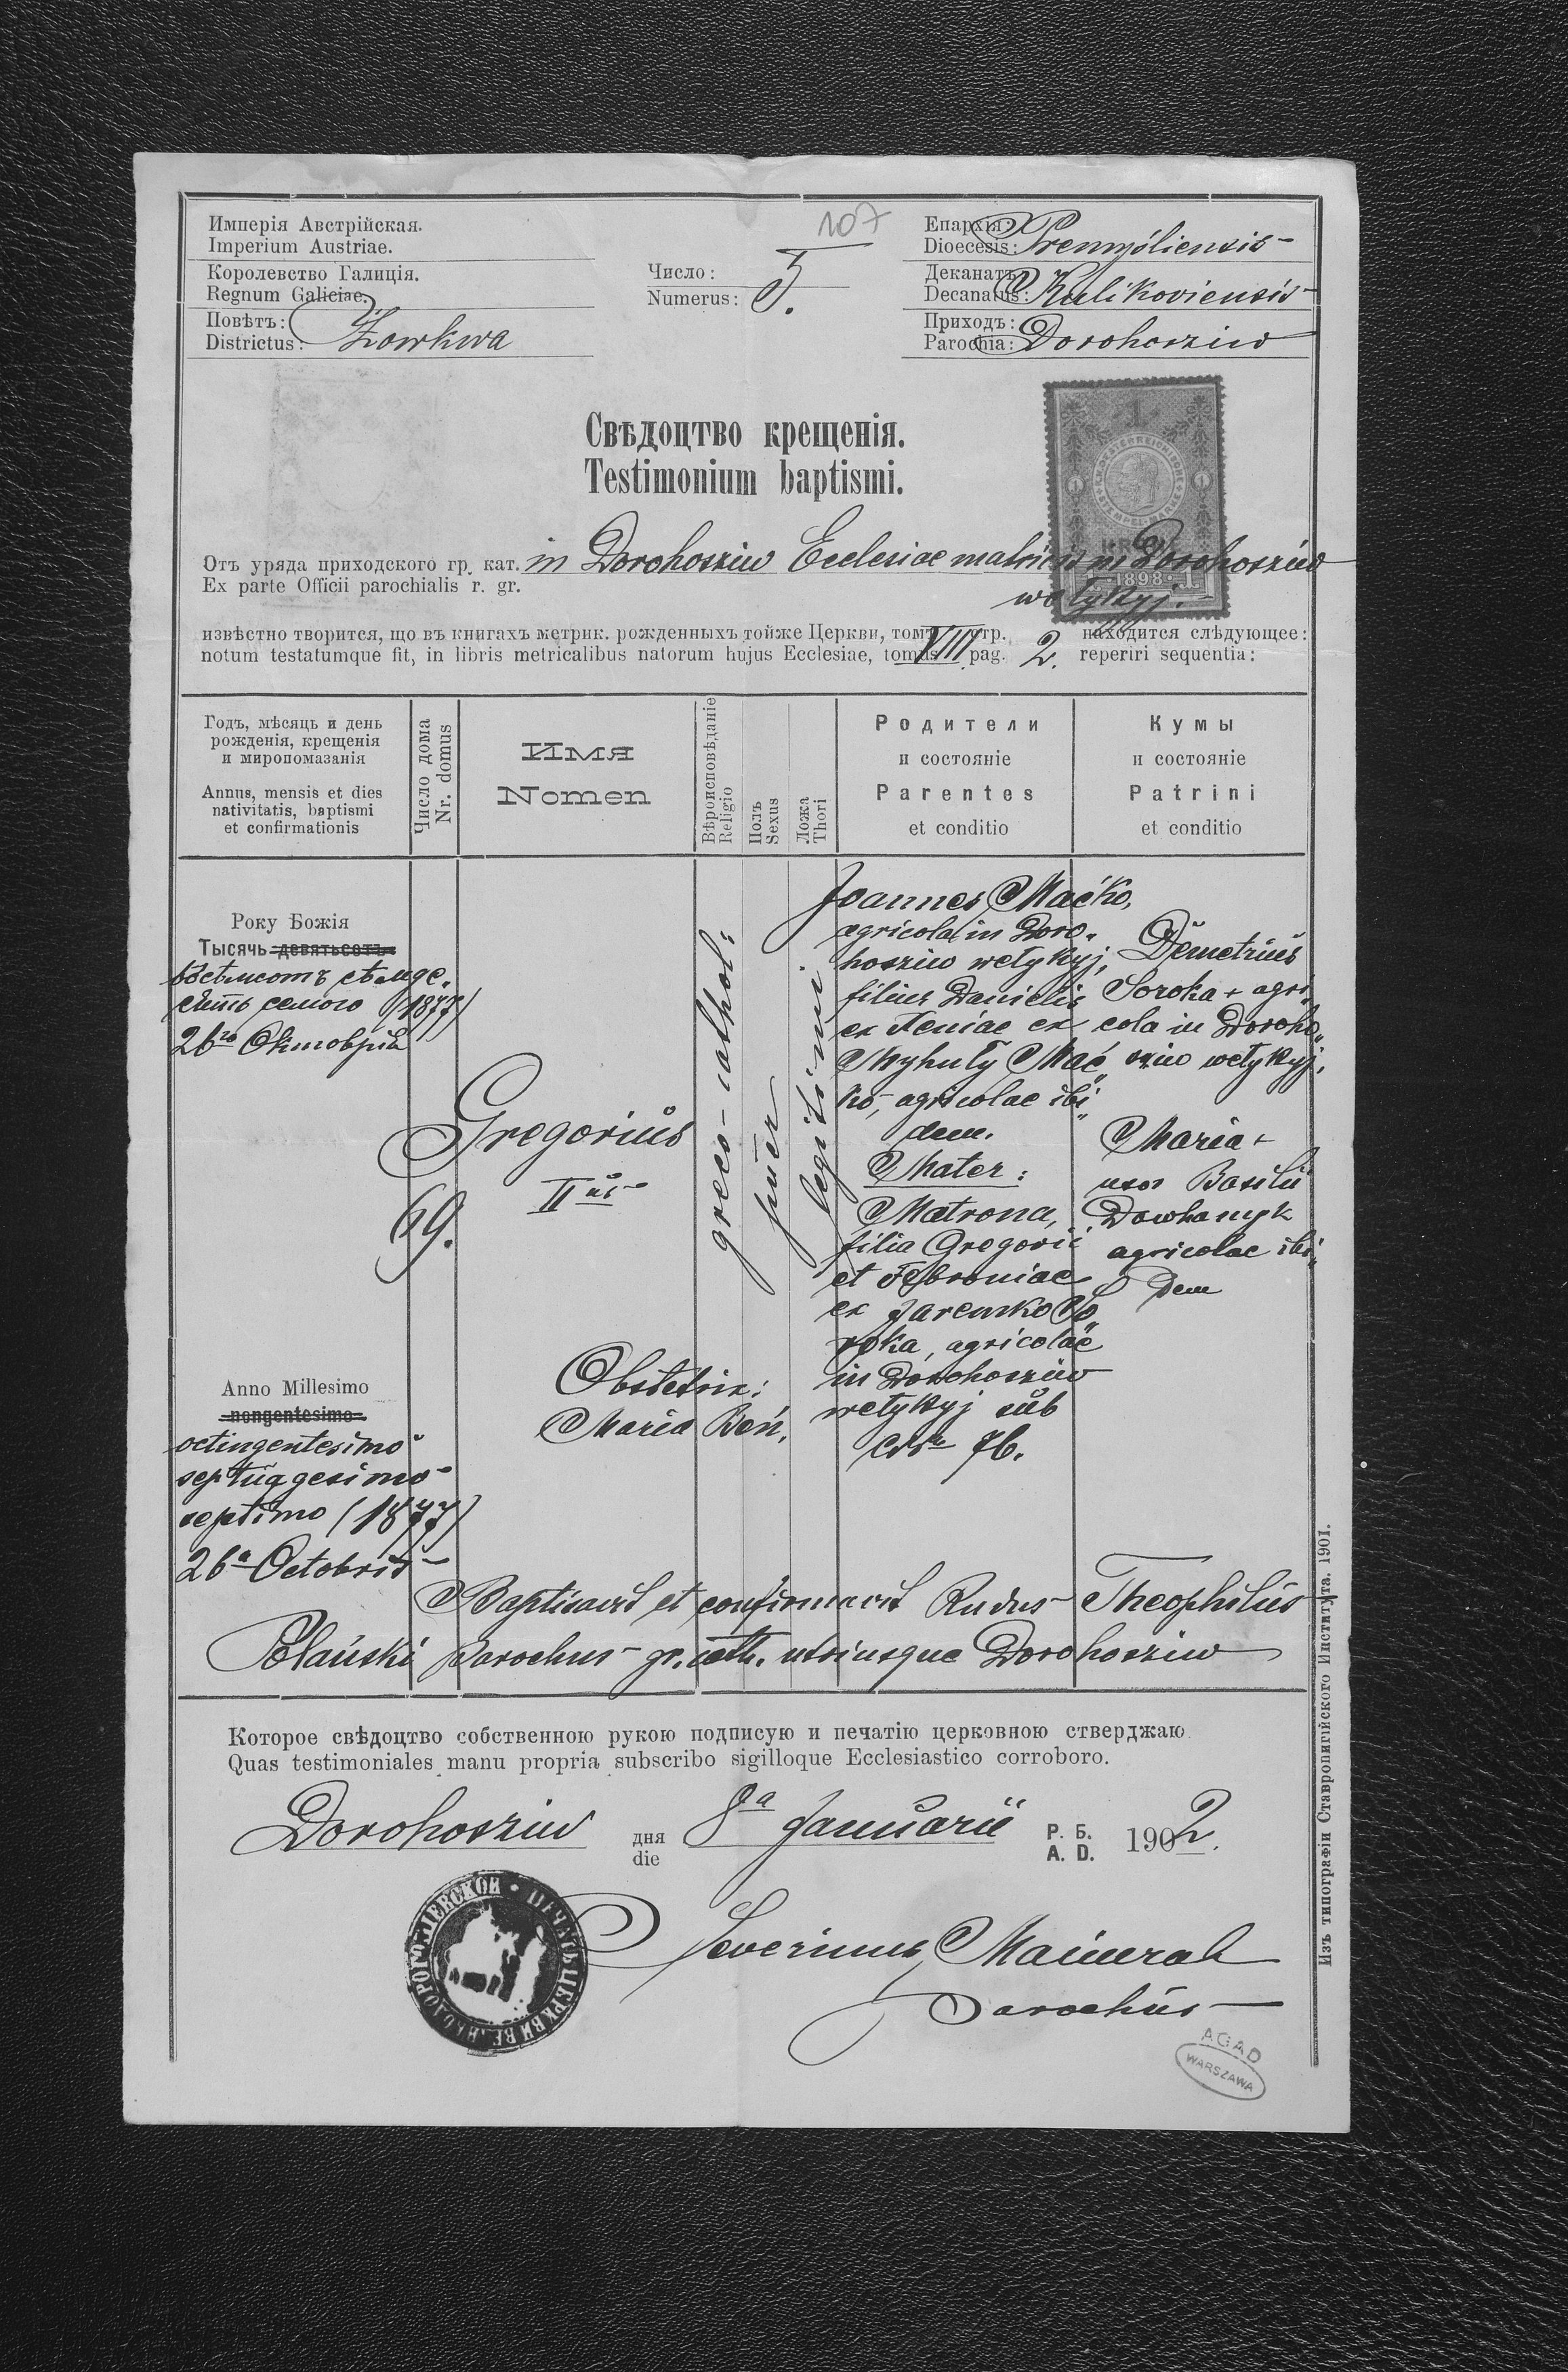 107
Имперія Австрійская.
Imperium Austriae.
Королевство Галиція.
Regnum Galiciae.
Повѣтъ:
Districtus: Żowkwa
Число:
Numerus: 5.
Епархія:
Dioecesis: Premysliensis
Деканатъ:
Decanatus: Kulikoviensis
Приходъ:
Parochia: Dorohosziw
Свѣдоцтво крещенія.
Testimonium baptismi.
1898
Отъ уряда приходского гр. кат. in Dorohosziw Ecclesiae matricis in Dorohosziw
Ex parte Officii parochialis r. gr.
wełykyj.
извѣстно творится, що въ книгахъ метрик. рожденныхъ тойже Церкви, томъ VIII стр. 2. находится слѣдующее:
notum testatumque fit, in libris metricalibus natorum hujus Ecclesiae, tomus pag. reperiri sequentia:
Годъ, мѣсяць и день
рожденія, крещенія
и миропомазанія
Annus, mensis et dies
nativitatis, baptismi
et confirmationis
Число дома
Nr. domus
Имя
Nomen
Вѣроисповѣданіе
Religio
Полъ
Sexus
Ложа
Thori
Родители
и состояніе
Parentes
et conditio
Кумы
и состояніе
Patrini
et conditio
Року Божія
Тысячь девятьсотъ
восѣмсотъ сѣмде-
сять семого (1877)
26го Октовріа
Anno Millesimo
nongentesimo
octingentesimo
septuaggesimo
septimo (1877)
26a Octobris
69.
Gregorius
IIus
Obstetrix:
Maria Beń.
greco-cathol:
puer
legitimi
Joannes Maćko,
agricola in Doro-
hosziw wełykyj,
filius Danielis
et Xeniae ex
Myhuły Mać
ko, agricolae ibi
dem.
Mater:
Matrona,
filia Gregorii
et Febroniae
ex Jaremko So
roka, agricolae
in Dorohosziw
wełykyj sub
CNr 76.
Demetrius
Soroka + agri
cola in Doroho
sziw wełykyj.
Maria +
uxor Basilii
Dowhanyk
agricolae ibi
dem
Baptisavit et confirmavit Rndus Theophilus
Polański parochus gr. cath. utriusque Dorohosziw
Которое свѣдоцтво собственною рукою подписую и печатію церковною стверджаю
Quas testimoniales manu propria subscribo sigilloque Ecclesiastico corroboro.
Dorohosziw дня
die 8a Januarii Р. Б.
A. D. 1902.
Severinus
Parochus
AGAD
WARSZAWA
Изъ типографіи Ставропигійского Института. 1901.